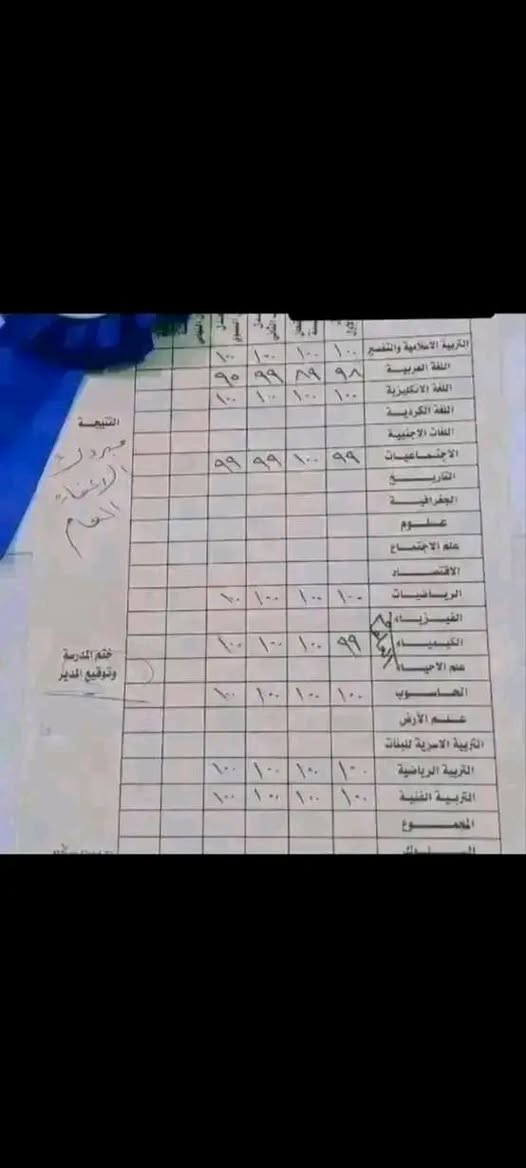 التربية الاسلامية والتفسير ١٠٠ ١٠٠ ١٠٠ ١٠٠
اللغة العربية ٩٨ ٨٩ ٩٩ ٩٥
اللغة الانكليزية ١٠٠ ١٠٠ ١٠٠ ١٠٠
اللغة الكردية
اللغات الاجنبية
الاجتماعيات ٩٩ ١٠٠ ٩٩ ٩٩
التاريخ
الجغرافية
علوم
علم الاجتماع
الاقتصاد
الرياضيات ١٠٠ ١٠٠ ١٠٠ ١٠٠
الفيزياء
الكيمياء ٩٩ ١٠٠ ١٠٠ ١٠٠
علم الاحياء
الحاسوب ١٠٠ ١٠٠ ١٠٠ ١٠٠
علم الأرض
التربية الاسرية للبنات
التربية الرياضية ١٠٠ ١٠٠ ١٠٠ ١٠٠
التربية الفنية ١٠٠ ١٠٠ ١٠٠ ١٠٠
المجموع
النتيجة
مبروك
الاعفاء
العام
ختم المدرسة
وتوقيع المدير